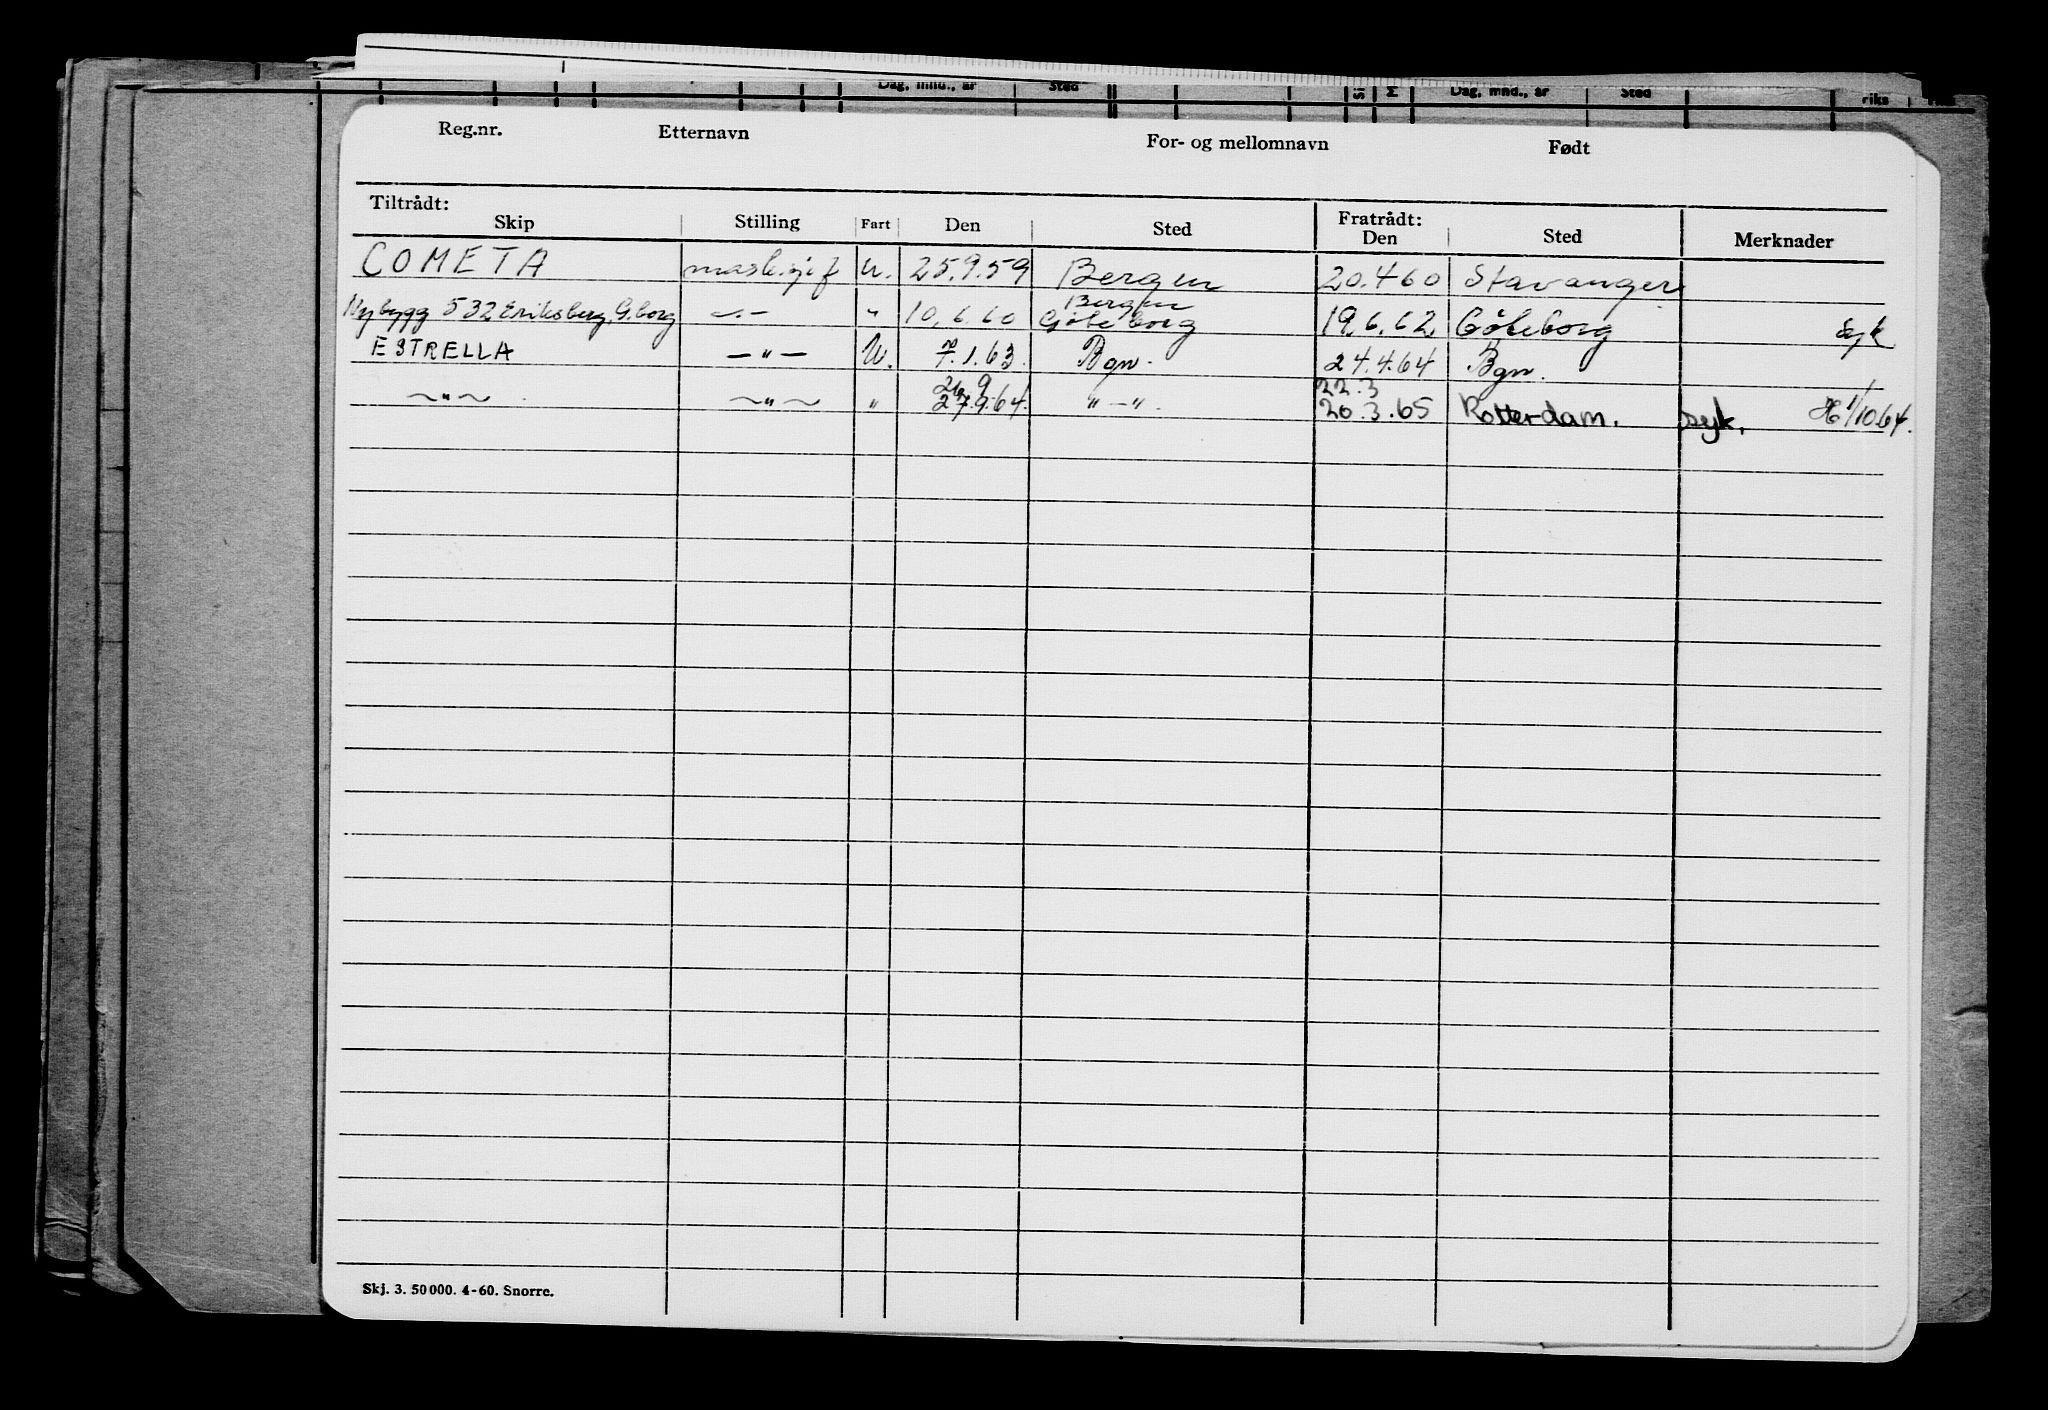 Dag, mnd., år Sted Dag, mnd., år Sted riks
Reg.nr. Etternavn For- og mellomnavn Født
Tiltrådt: Fratrådt:
Skip Stilling Fart Den Sted Den Sted Merknader
COMETA mask.sjef U. 25.9.59 Bergen 20.4.60 Stavanger
Bergen
Nybygg 532 Eriksberg, G.borg -"- " 10.6.60 Göteborg 19.6.62 Göteborg syk
ESTRELLA -"- U. 7.1.63 Bgn. 24.4.64 Bgn.
26.9 22.3
-"- -"- " 27.9.64. "-". 20.3.65 Rotterdam. syk. 1/10.64.
Skj. 3. 50 000. 4-60. Snorre.